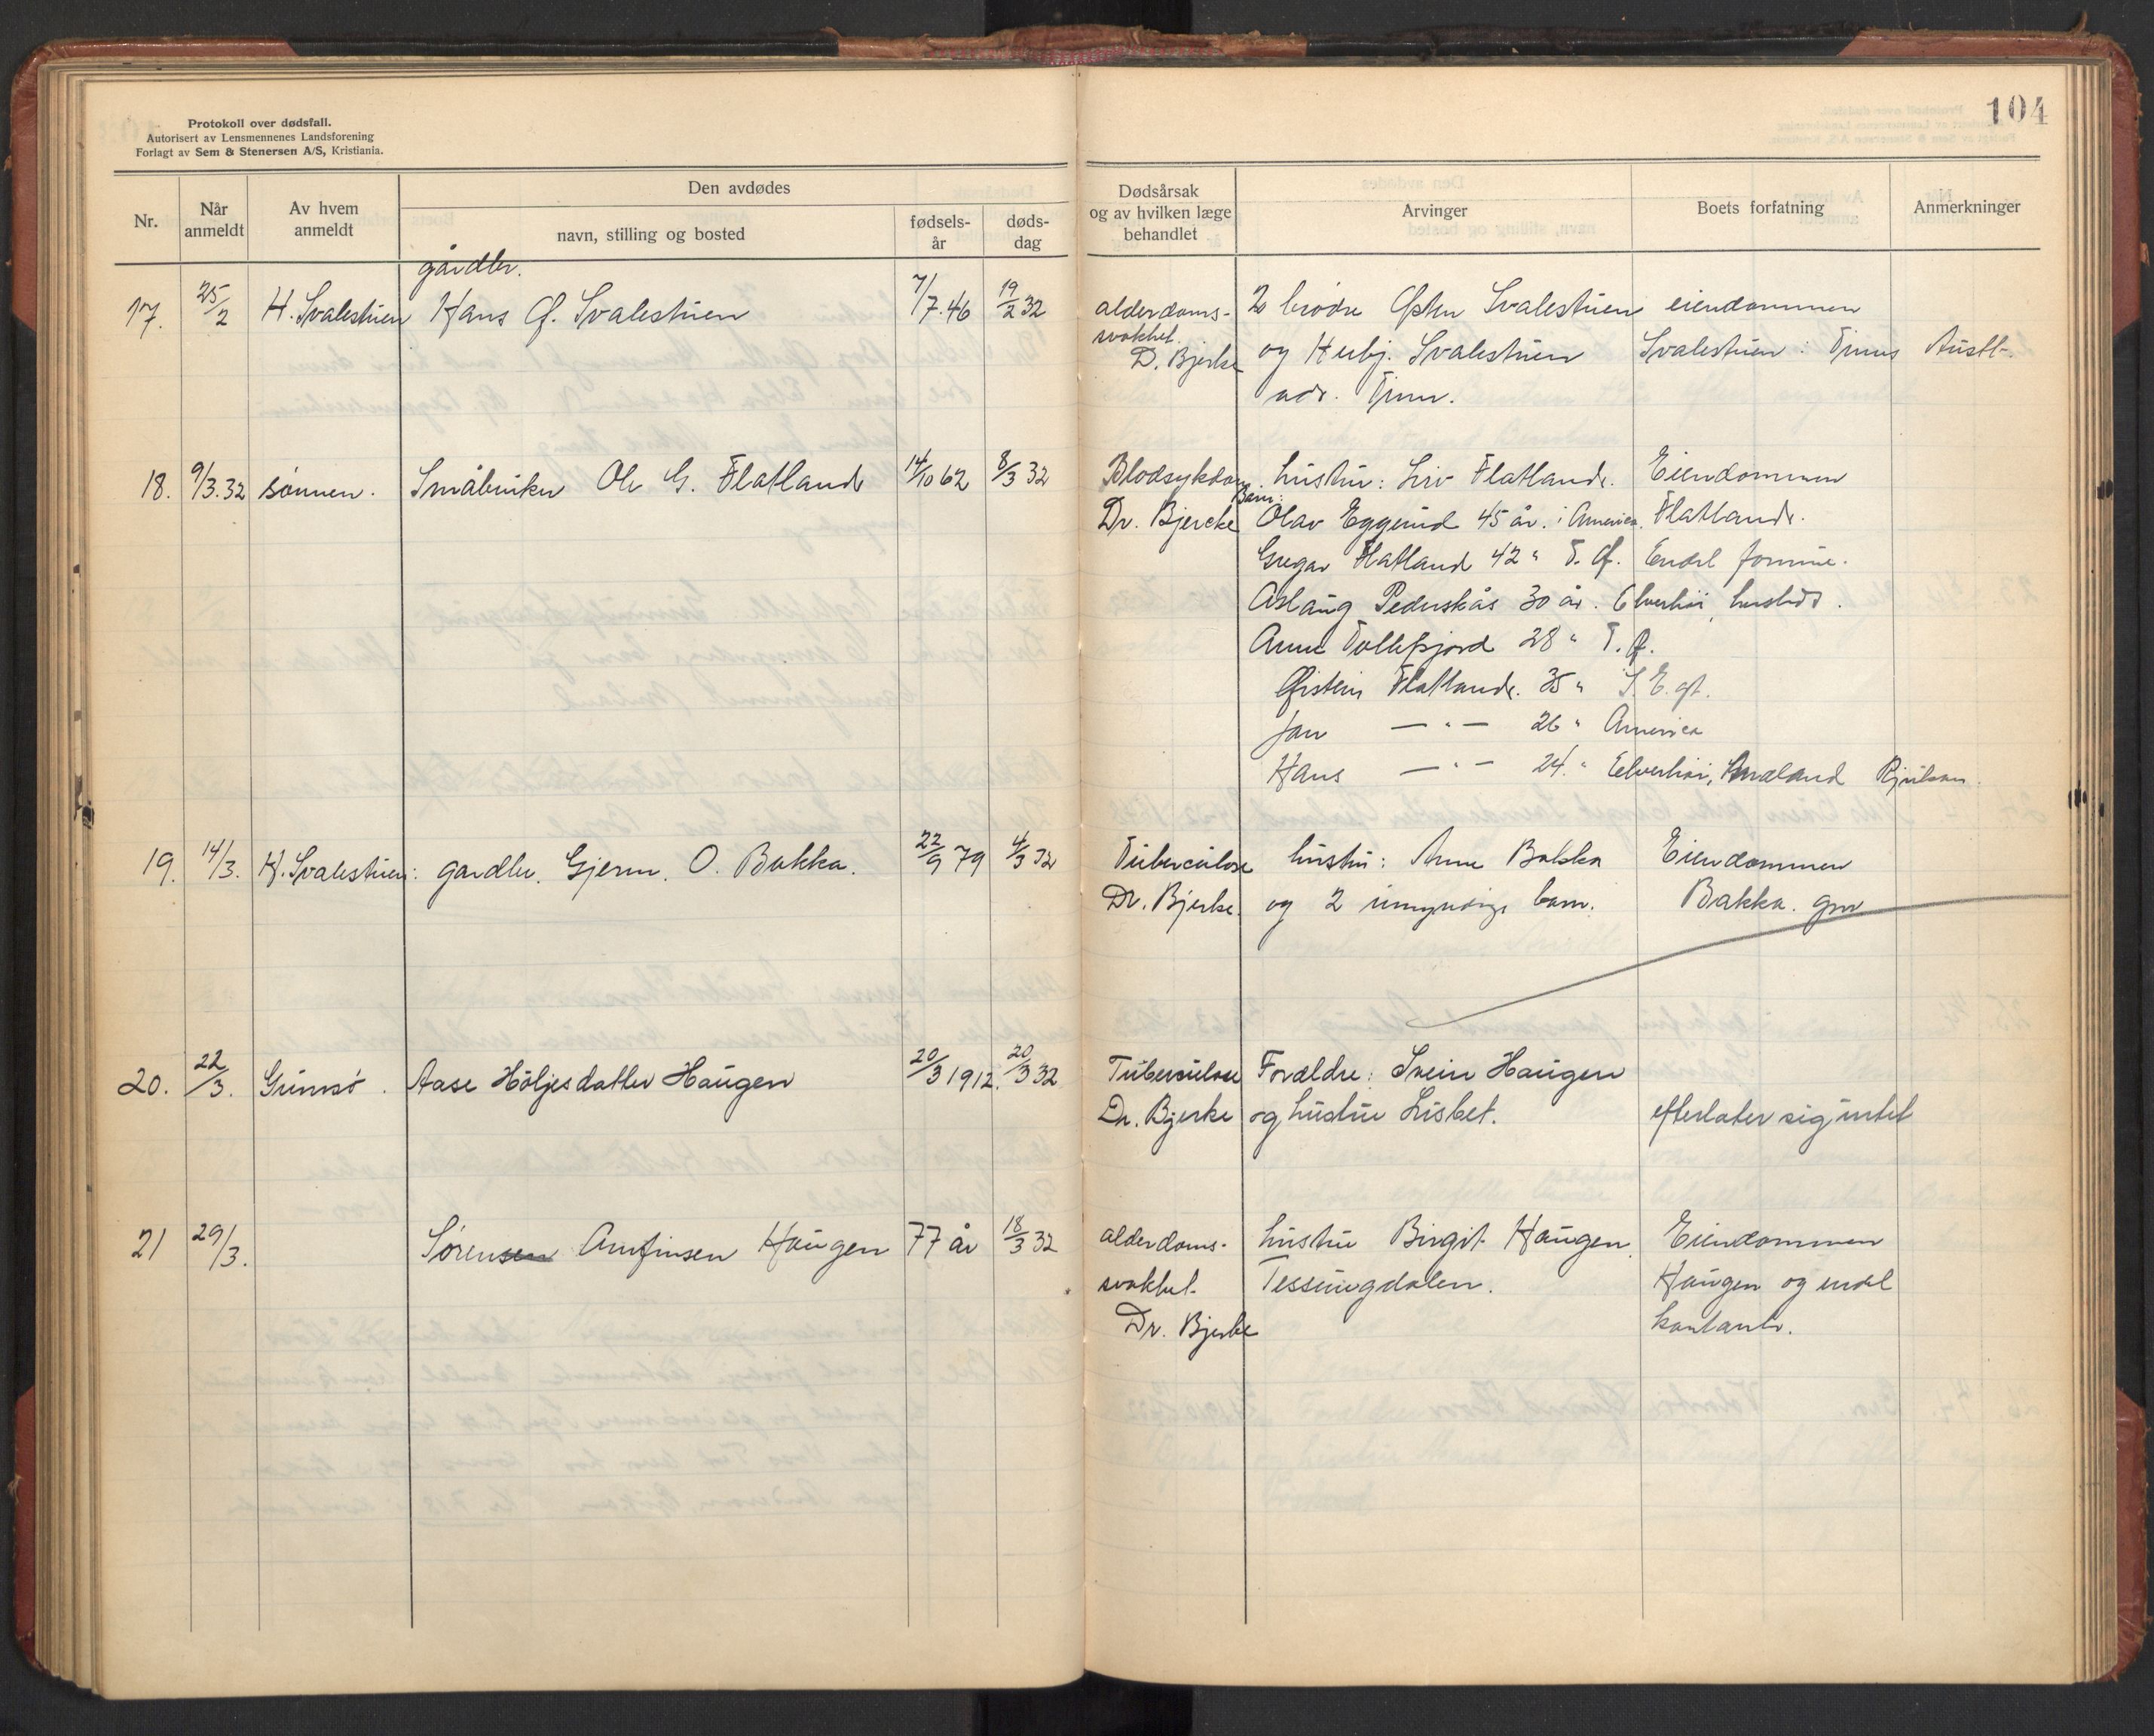 Protokoll over dødsfall.
Autorisert av Lensmennenes Landsforening
Forlagt av Sem & Stenersen A/S, Kristiania.
104
Nr.
Når anmeldt
Av hvem anmeldt
Den avdødes
navn, stilling og bosted
fødsels-år
døds-dag
Dødsårsak og av hvilken læge behandlet
Arvinger
Boets forfatning
Anmerkninger
gårdbr.
17. 25/2 H. Svalestuen Hans Svalestuen 7/7.46 19/2 32 alderdoms- 2 brødre Svalestuen eiendommen
D. Bjerke og Svalestuen Svalestuen
adr.
18. 9/3.32 sønnen. Småbruker Ole G. Flatland 14/10 62 8/3 32 Blodsykdom hustru: Liv Flatland. Eiendommen
Barn:
Dr. Bjercke Olav Eggerud 45 år. i America. Flatland.
Gregar Flatland 42 " Endel formue.
Aslaug Pederskås 30 år.
Anne 28 "
Øistein Flatland. 35 "
Jan — " — 26 " America
Hans — " — 24. "
19. 14/3. H. Svalestuen: gardbr. Gjerm. O. Bakka. 22/9 79 4/3 32 Tuberculose hustru: Anne Bakka Eiendommen
Dr. Bjerke. og 2 umyndige barn. Bakka.
20. 22/3. Grimsø. Aase Höljesdatter Haugen 20/3 1912. 20/3 32 Tuberculose Forældre: Svein Haugen
Dr. Bjerke og hustru Lisbet. efterlater sig intet
21 29/3. Sørensen Arnfinsen Haugen 77 år 18/3 32 alderdoms- hustru Birgit Haugen. Eiendommen
svakhet Tessungdalen. Haugen og endel
Dr. Bjerke kontanter.